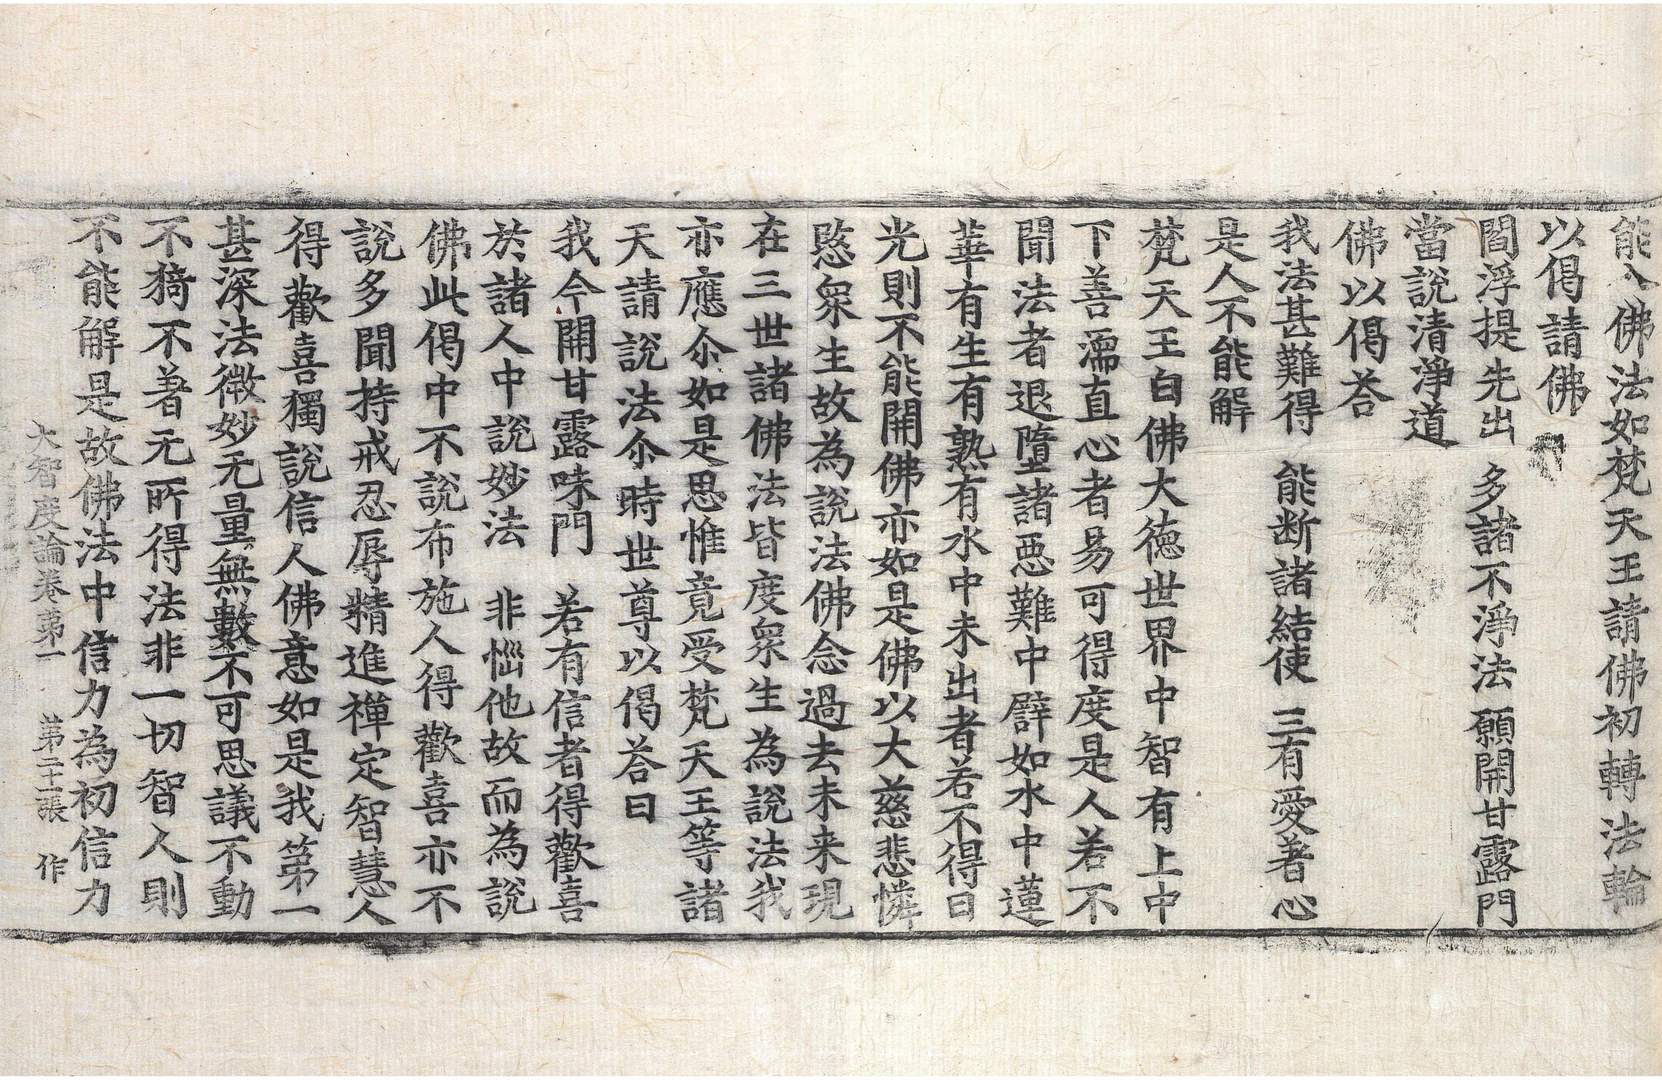 能入佛法如梵天王請佛初轉法輪
以偈請佛
閻浮提先出　多諸不淨法　願開甘露門
當說清淨道
佛以偈荅
我法甚難得　能断諸結使　三有愛著心
是人不能解
梵天王白佛大德世界中智有上中
下善濡直心者易可得度是人若不
聞法者退墮諸惡難中譬如水中蓮
華有生有熟有水中未出者若不得日
光則不能開佛亦如是佛以大慈悲憐
愍衆生故為說法佛念過去未来現
在三世諸佛法皆度衆生為說法我
亦應尒如是思惟竟受梵天王等諸
天請說法尒時世尊以偈荅曰
我今開甘露味門　若有信者得歡喜
於諸人中說妙法　非惱他故而為說
佛此偈中不說布施人得歡喜亦不
說多聞持戒忍辱精進禪定智慧人
得歡喜獨說信人佛意如是我第一
甚深法微妙无量無數不可思議不動
不猗不著无所得法非一切智人則
不能解是故佛法中信力為初信力
大智度論卷第一　第二十二張　作